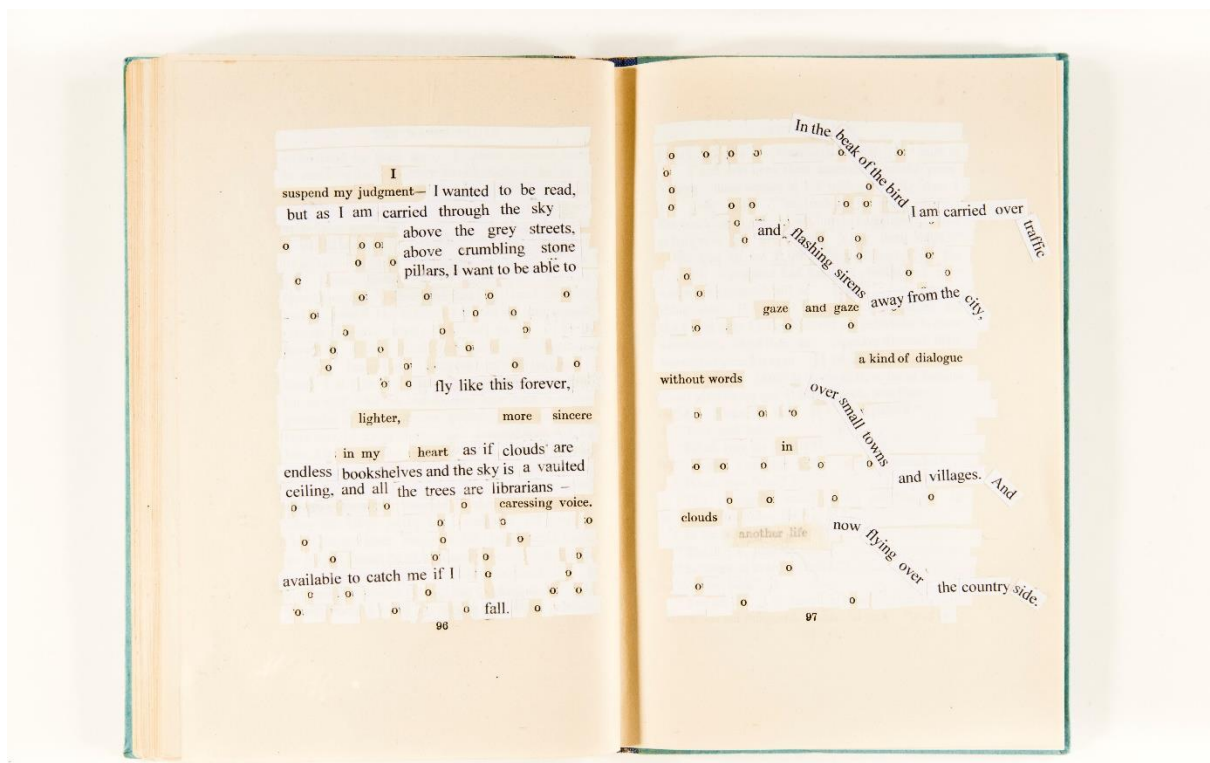 I
suspend my judgment— I wanted to be read,
but as I am carried through the sky
above the grey streets,
o o o above crumbling stone
o o pillars, I want to be able to
o
o o o o
o o o
o o o
o o o
o o o o
o o fly like this forever,
lighter, more sincere
in my heart as if clouds are
endless bookshelves and the sky is a vaulted
ceiling, and all the trees are librarians –
o o o caressing voice.
o o o
o o o
o o o o
available to catch me if I o o
o o o o o
o o o o fall. o
96
In the beak of the bird
o o o o o o
o
o o
o o o o o I am carried over traffic
o and flashing sirens o o
o o o
o o o
o away from the city,
gaze and gaze
o o o
a kind of dialogue
without words
over small towns
o o o
in
o o o o o
and villages. And
o o o o
clouds
now flying over
another life
o
o the country side.
o o
97